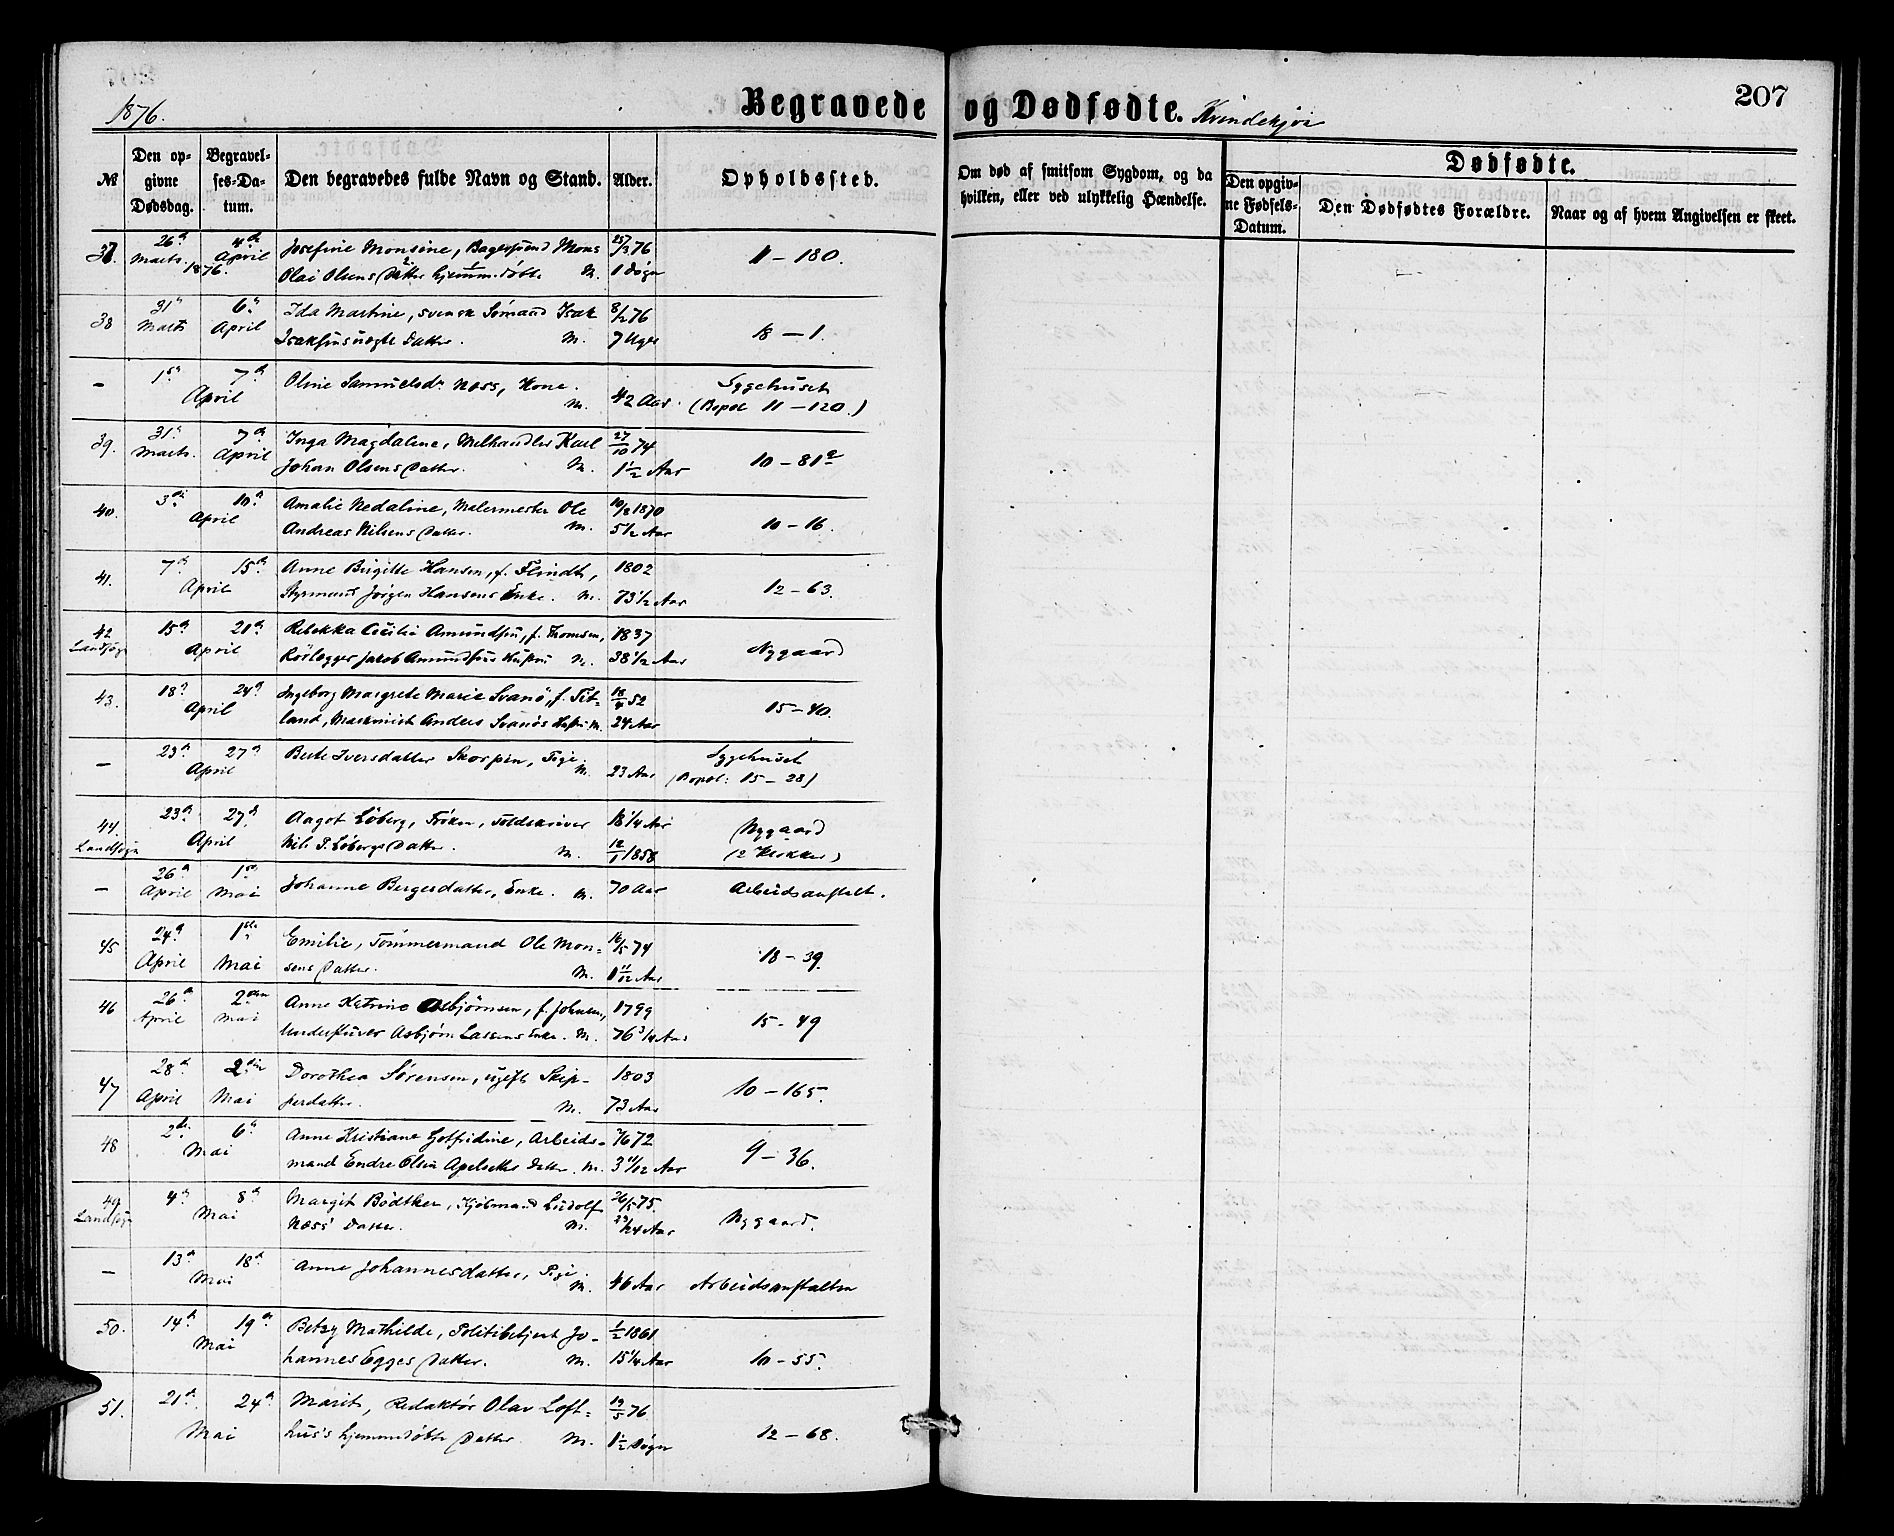 1876.
Begravede og Dødfødte. Kvindekjøn
207
No.
Den opgivne Dødsdag.
Begravelses-Datum.
Den begravedes fulde Navn og Stand.
Alder.
Opholdssted.
Om død af smitsom Sygdom, og da hvilken, eller ved ulykkelig Hændelse.
Dødfødte.
Den opgivne Fødsels-Datum.
Den Dødfødtes Forældre.
Naar og af hvem Angivelsen er skeet.
37. 26de 4de Josefine Monsine, Bagersvend Mons 25/3 76 11 – 180.
Marts 1876. April Olai Olsens Datter hjemmedøbt M. 1 Døgn
38 31te 6te Ida Martine, svensk Sømand Isak 8/2 76 18 – 1.
Marts April Isaksens uægte Datter. M. 7 Uger
– 1ste 7de Oline Samuelsdr. Næss, Kone. Sygehuset
April M. 42 Aar. (Bopæl 11 – 120.)
39. 31te 7de Inga Magdaline, Melhandler Karl 27/10 74 10 – 81
Marts April Johan Olsens Datter. M. 1 1/2 Aar
40. 3die 10de Amalie Nedaline, Malermester Ole 10/8 1870 10 – 16.
April Andreas Nilsens Datter. M. 5 1/2 Aar
41. 7de 15de Anne Birgitte Hansen, f. Flindt, 1802 12 – 63.
April Styrmand Jørgen Hansens Enke. M. 73 1/2 Aar
42 15de 20de Rebekka Cecilie Amundsen, f. Thomsen, 1837 Nygaard
Landsogn April Rørlægger Jacob Amundsens Hustru M. 38 1/2 Aar
43. 18de 24de Ingeborg Margrete Marie Svanø, f. Tit- 18/4 52 15 – 40.
April land, Maskinist Anders Svanøs Hustru M. 24 Aar
– 23de 27de Berte Iversdatter Skorpen, Pige. Sygehuset
April M. 23 Aar (Bopæl: 15 – 28)
44. 23de 27de Aagot Løberg, Frøken, Toldskriver 18 1/4 Aar Nygaard
Landsogn April Nils P. Løbergs Datter. M. 12/1 1858 (2 Klokker)
– 26de 1ste Johanne Bergersdatter, Enke. M. 70 Aar Arbeidsanstalt.
April Mai
45 24de 1ste Emilie, Tømmermand Ole Mon- 16/5 74 18 – 39.
April Mai sens Datter. M. 1 11/12 Aar
46 26de 2den Anne Katrine Asbjørnsen, f. Johnsen, 1799 15 – 49
April Mai Asbjørn Larsens Enke. M. 76 3/4 Aar
47 28de 2den Dorothea Sørensen, ugift Skip- 1803 10 – 165.
April Mai perdatter. M. 73 Aar
48 2den 6te Anne Kristiane Gotfridine, Arbeids- 72 9 – 36.
Mai mand Endre Olsen Apelsæters Datter. M. 3 11/12 Aar
49 4de 8de Margit Bødtker, Kjøbmand Ludolf 26/5 75. Nygaard.
Landsogn Mai Næss' Datter. M. 23/24 Aar
– 13de 18de Anne Johannesdatter, Pige.
Mai M. 46 Aar Arbeidsanstalten
50. 14de 19de Betzy Mathilde, Politibetjent Jo- 1/2 1861 10 – 55.
Mai hannes Egges Datter. M. 15 1/4 Aar
51. 21de 24de Marit, Redaktør Olav Loft- 19/5 76 12 – 68.
Mai hus's hjemmedøbte Datter. M. 1 1/2 Døgn